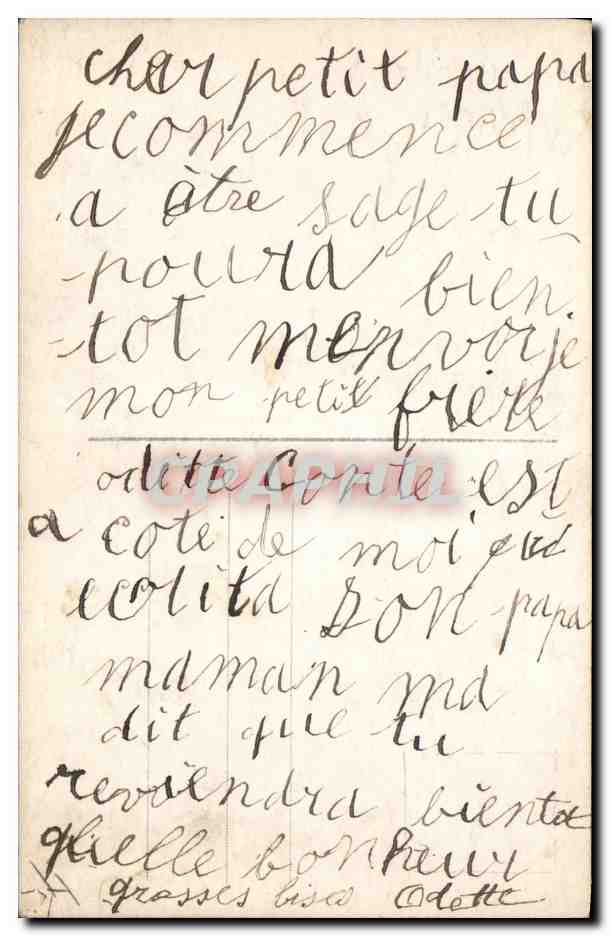 cher petit papa
je commence
a être sage tu
poura bien
tot mon voije
mon petit frère
oditte conte est
a coté de moi qui
ecolita son papa
maman ma
dit que tu
reviendra bientot
quelle bonheur
grosses bises Odette
CPAPHIL